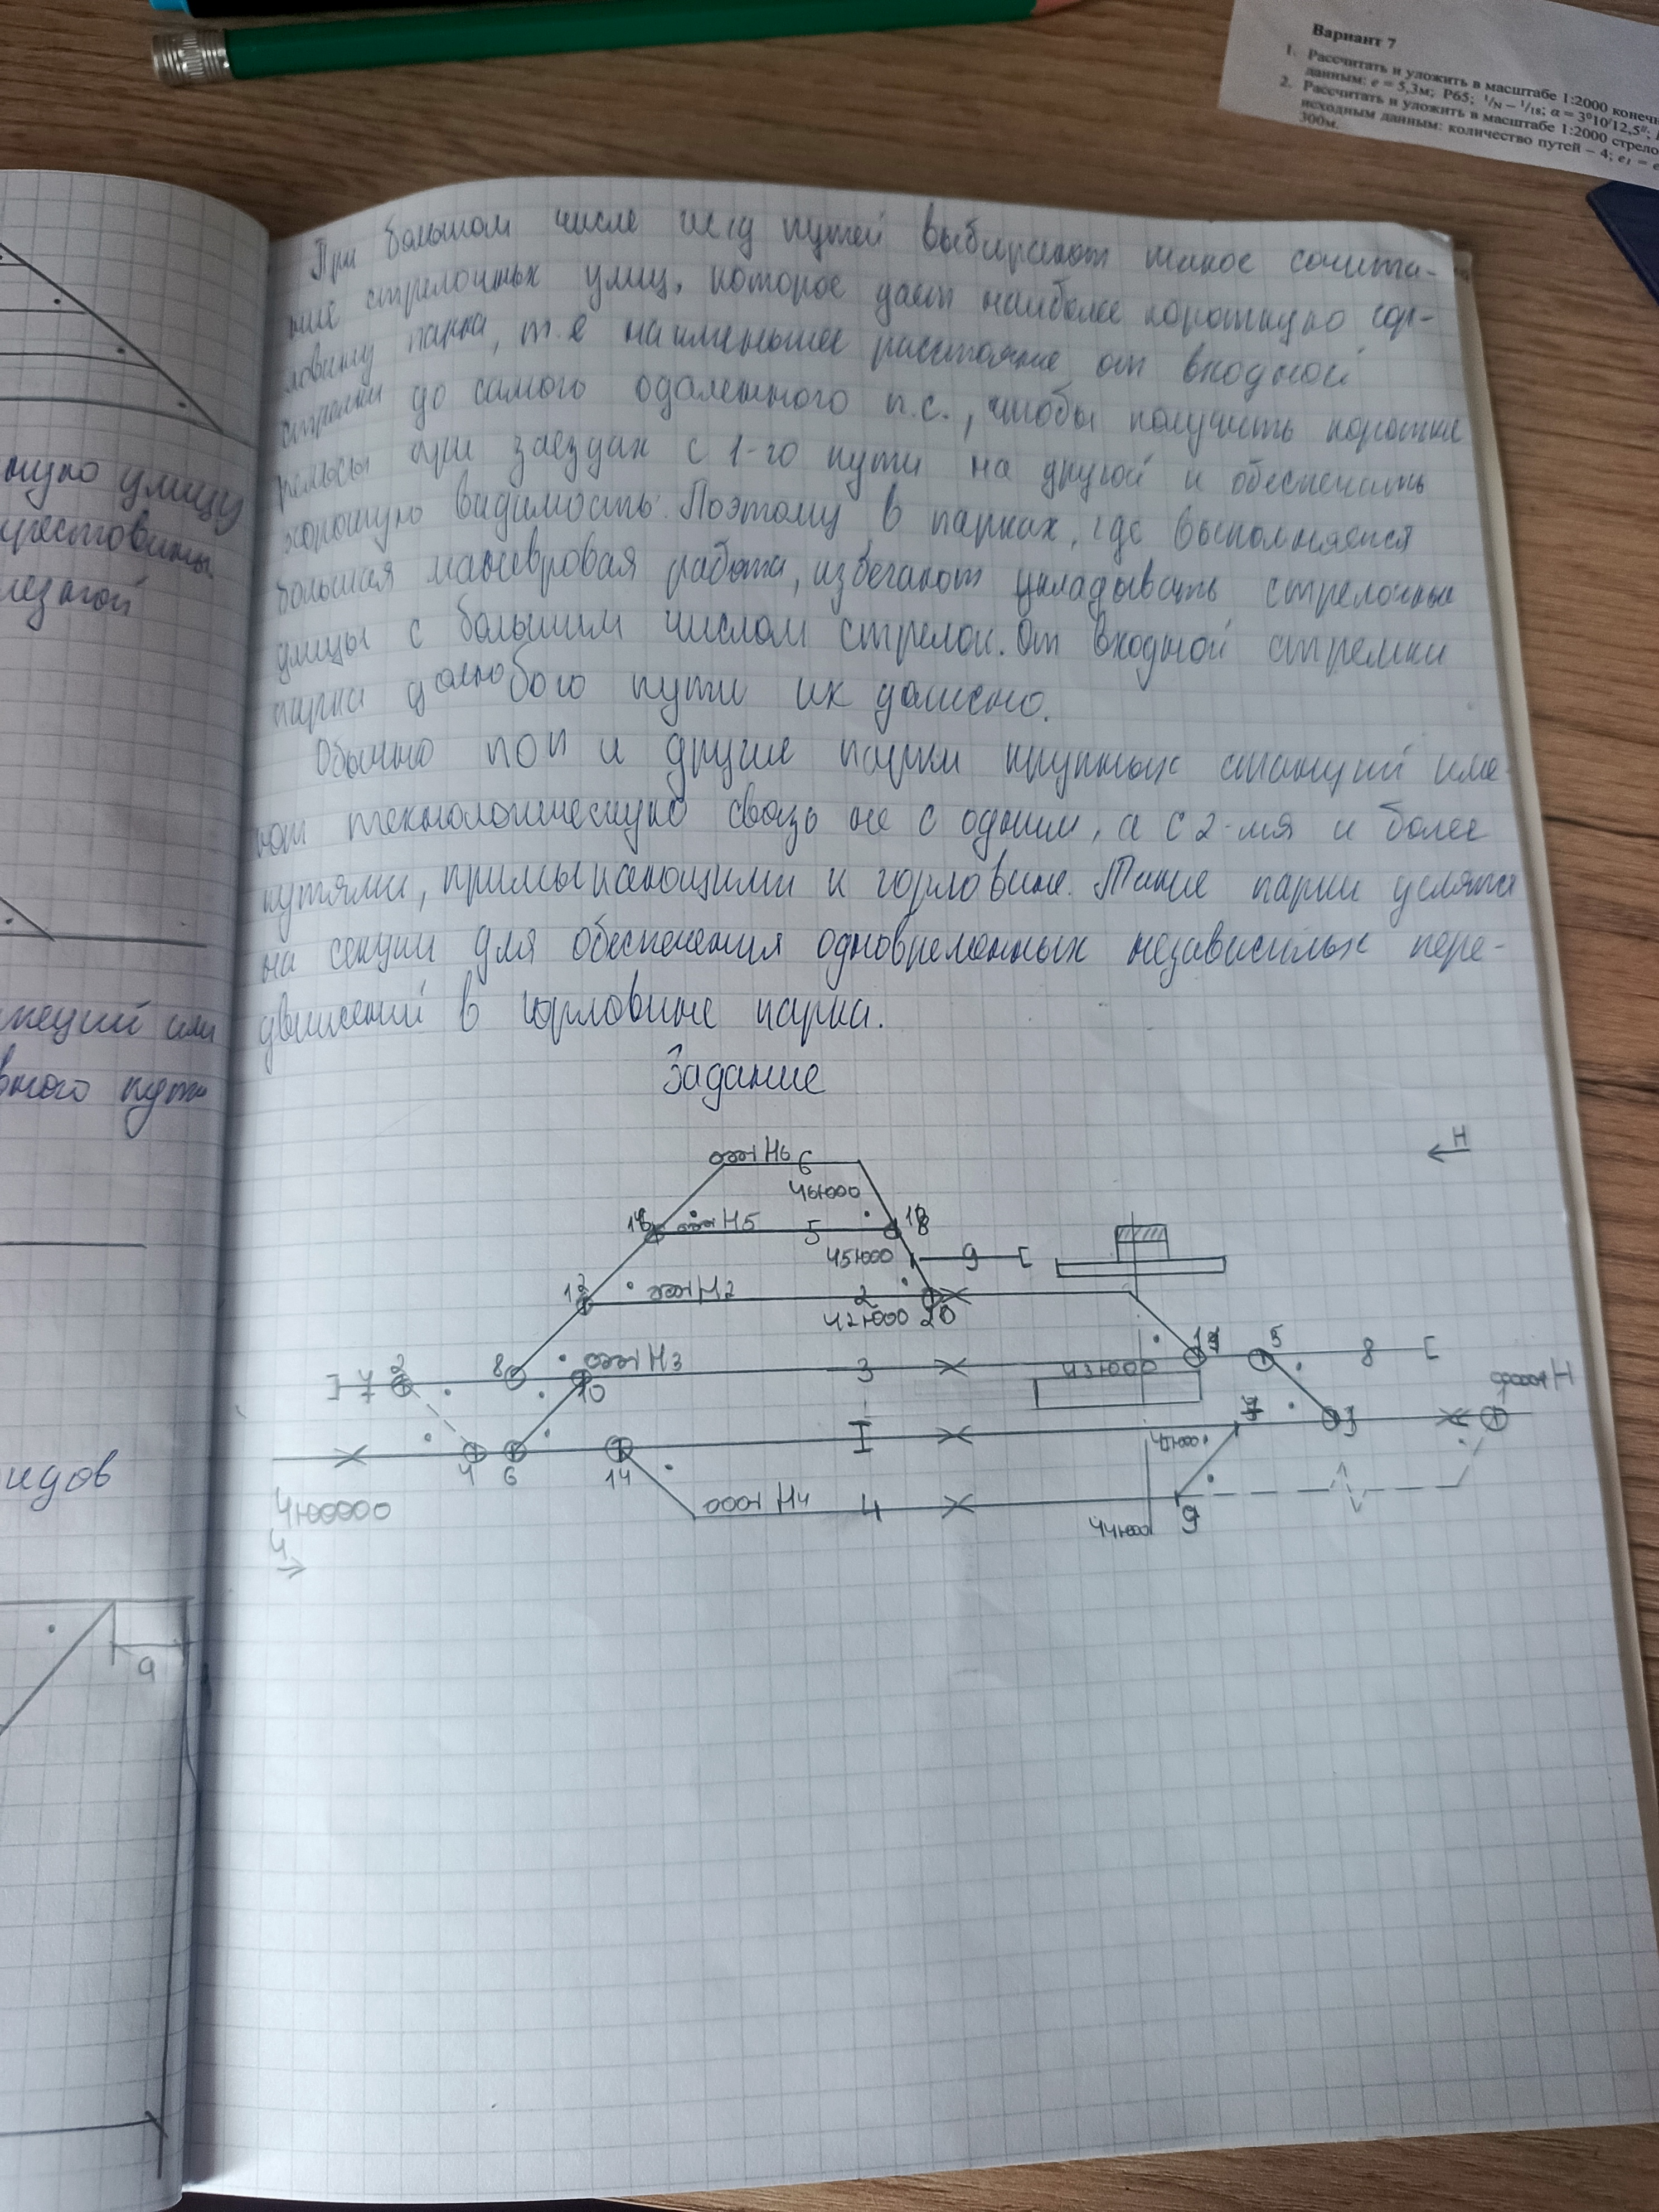 Вариант 7
1. Рассчитать и уложить в масштабе 1:2000
данным: e = 5,3м; Р65; 1/N – 1/18; α = 3°10'12,5";
2. Рассчитать и уложить в масштабе 1:2000
исходным данным: количество путей – 4; e₁ =
300м.
При большом числе путей выбирают такое сочита-
ние стрелочных улиц, которое дает наиболее короткую гор-
ловину парка, т.е наименьшее расстояние от входной
стрелки до самого одаленного п.с., чтобы получить короткие
рельсы при заездах с 1-го пути на другой и обеспечить
хорошую видимость. Поэтому в парках, где выполняется
большая маневровая работа, избегают укладывать стрелочные
улицы с большим числом стрелок. От входной стрелки
парка до любого пути их должно.
Обычно ПОП и другие парки крупных станций име
ют технологическую связь не с одним, а с 2-мя и более
путями, примыкающими к горловине. Такие парки делятся
на секции для обеспечения одновременных независимых пере-
движений в горловине парка.
Задание
ную улицу
крестовины
или
вного путь
идов
a
Н
Н6 6
Ч6
16 Н5 5 18
Ч5 9
12 Н2 2
Ч2 20
2 8 Н3 3 Ч3 5 8
7 10 Н
4 6 14 I 3
Н4 4 Ч4 9
Ч
Ч